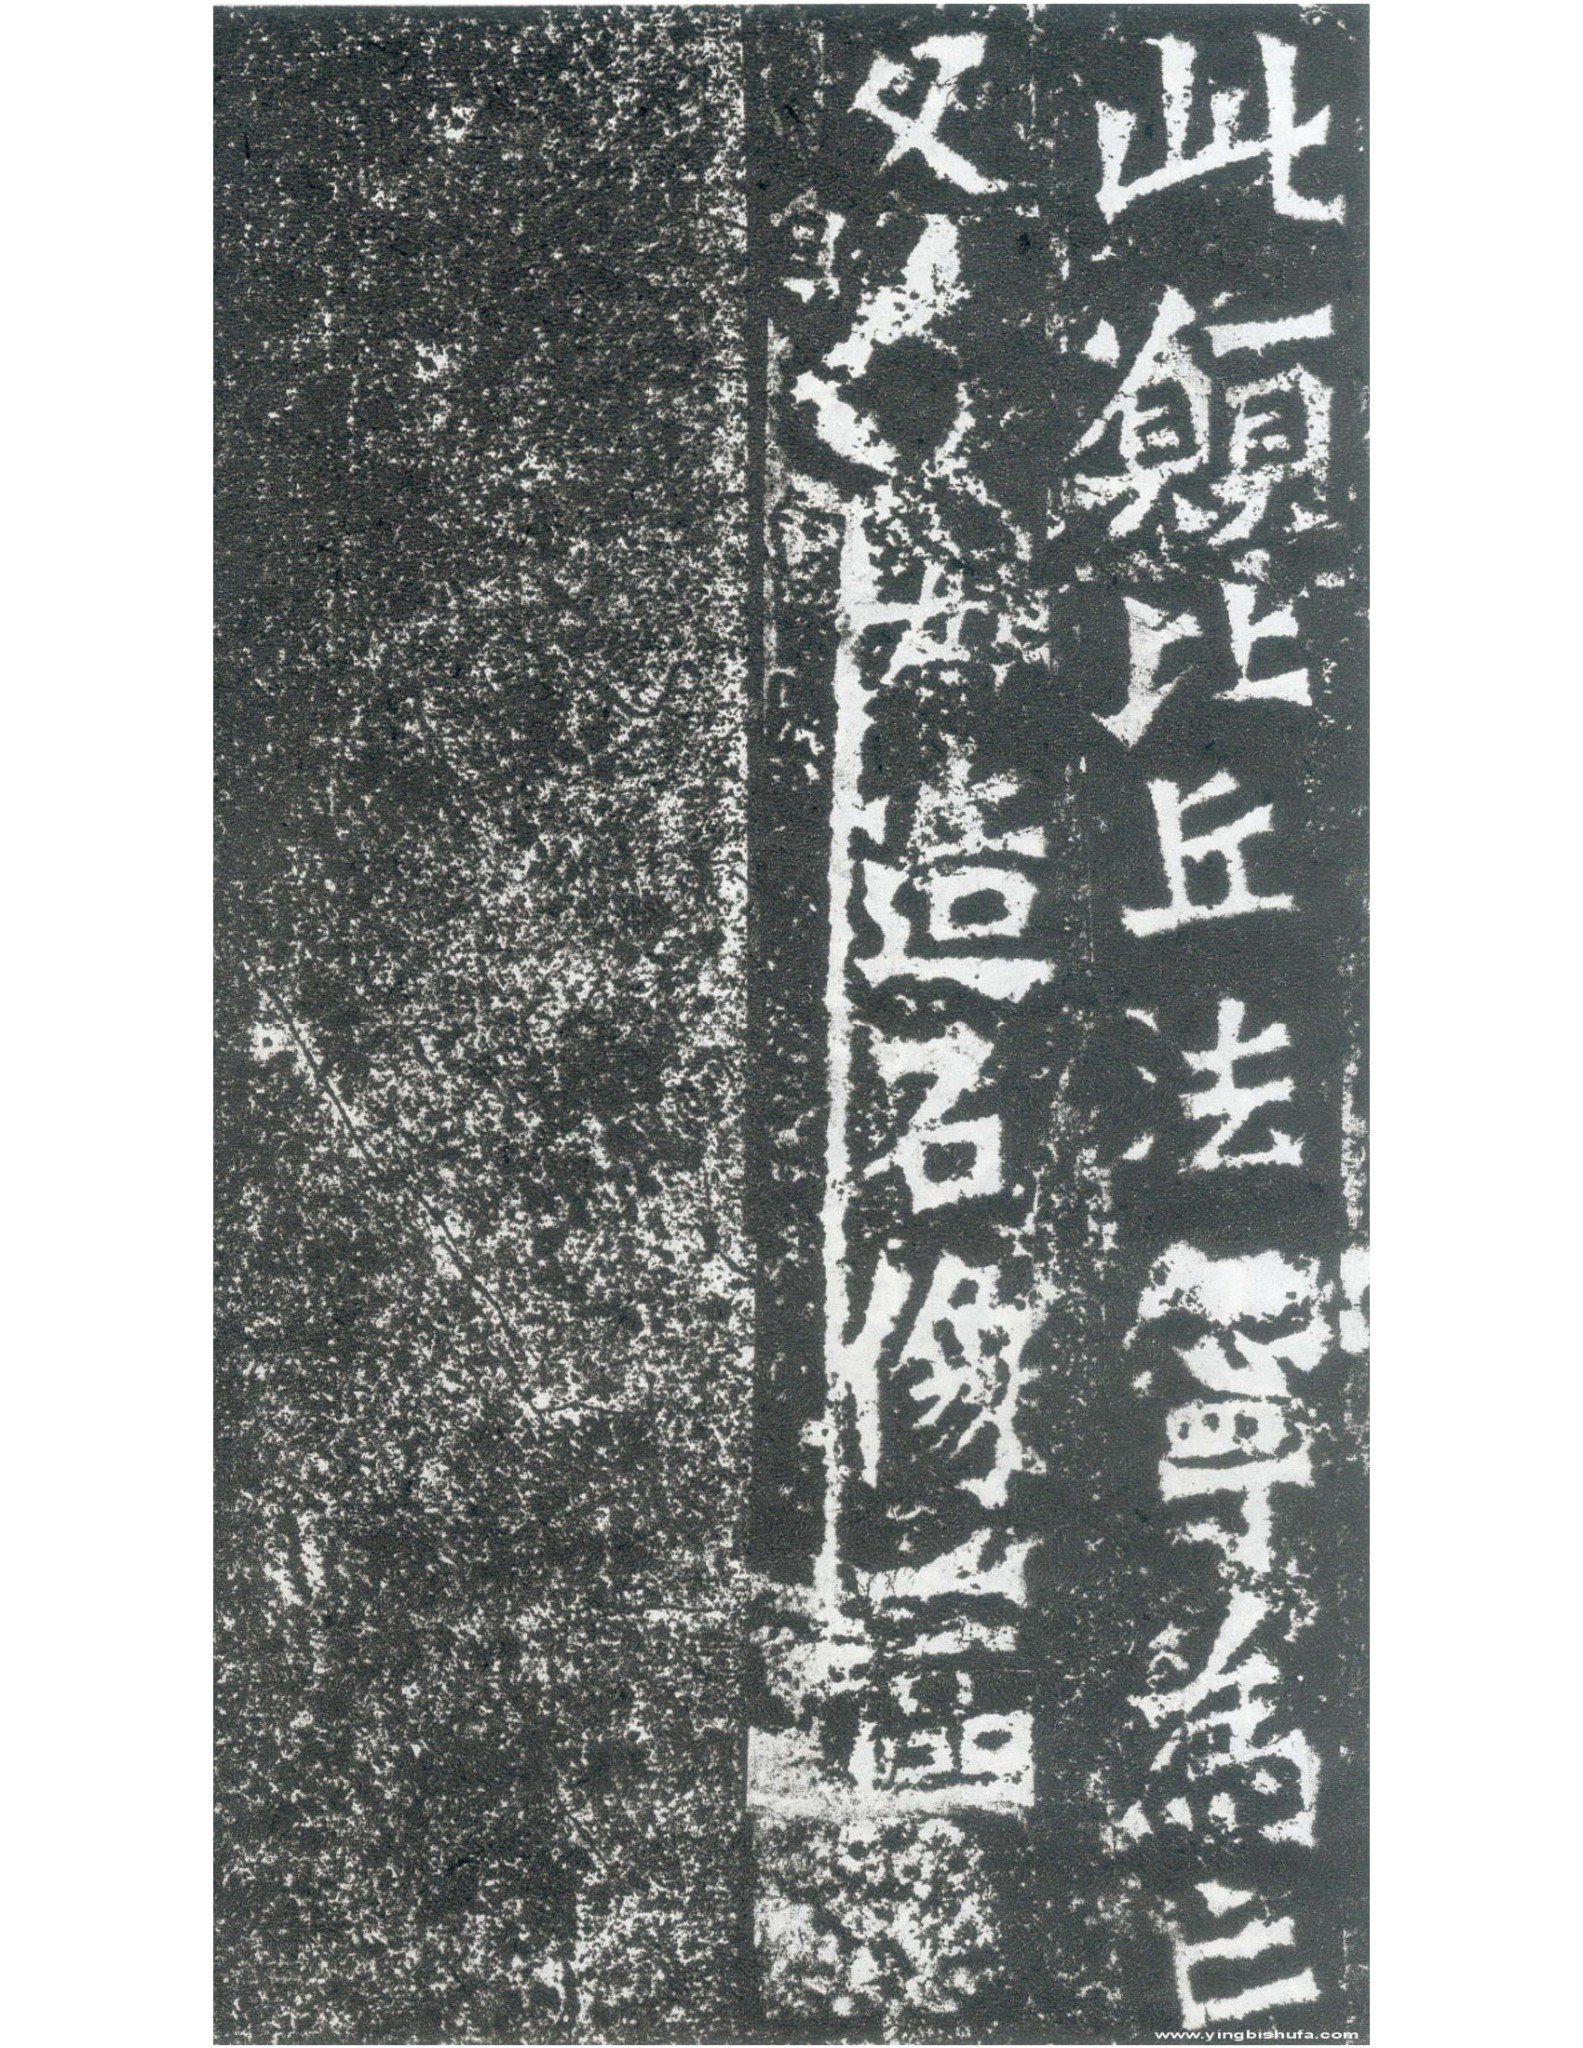 此願比丘法寧為亡
又造石像一區
www.yingbishufa.com